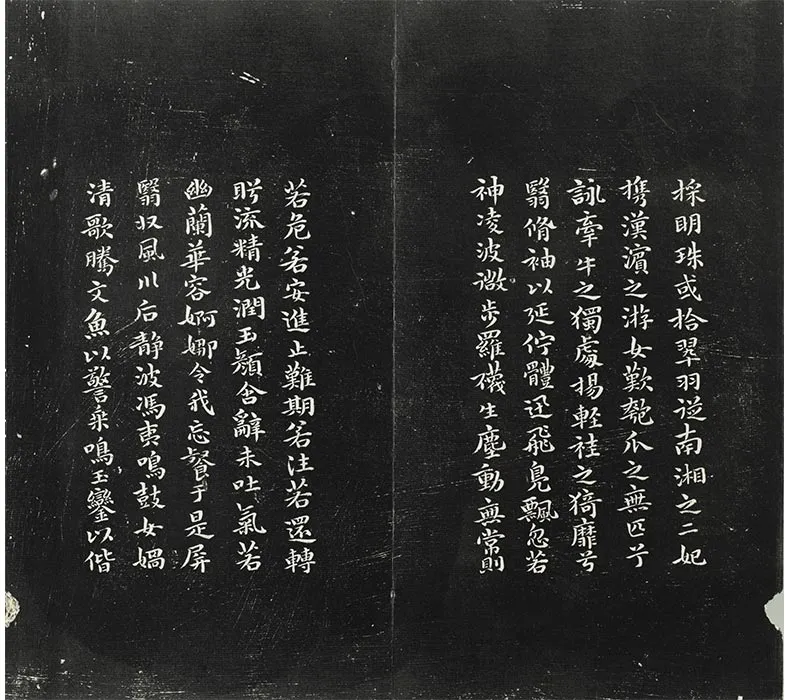 採明珠或拾翠羽從南湘之二妃
携漢濱之游女歎匏瓜之無匹兮
詠牽牛之獨處揚輕袿之猗靡兮
翳脩袖以延佇體迅飛鳧飄忽若
神凌波微步羅襪生塵動無常則
若危若安進止難期若注若還轉
眄流精光潤玉顏含辭未吐氣若
幽蘭華容婀娜令我忘餐于是屏
翳収風川后靜波馮夷鳴鼓女媧
清歌騰文魚以警乘鳴玉鑾以偕